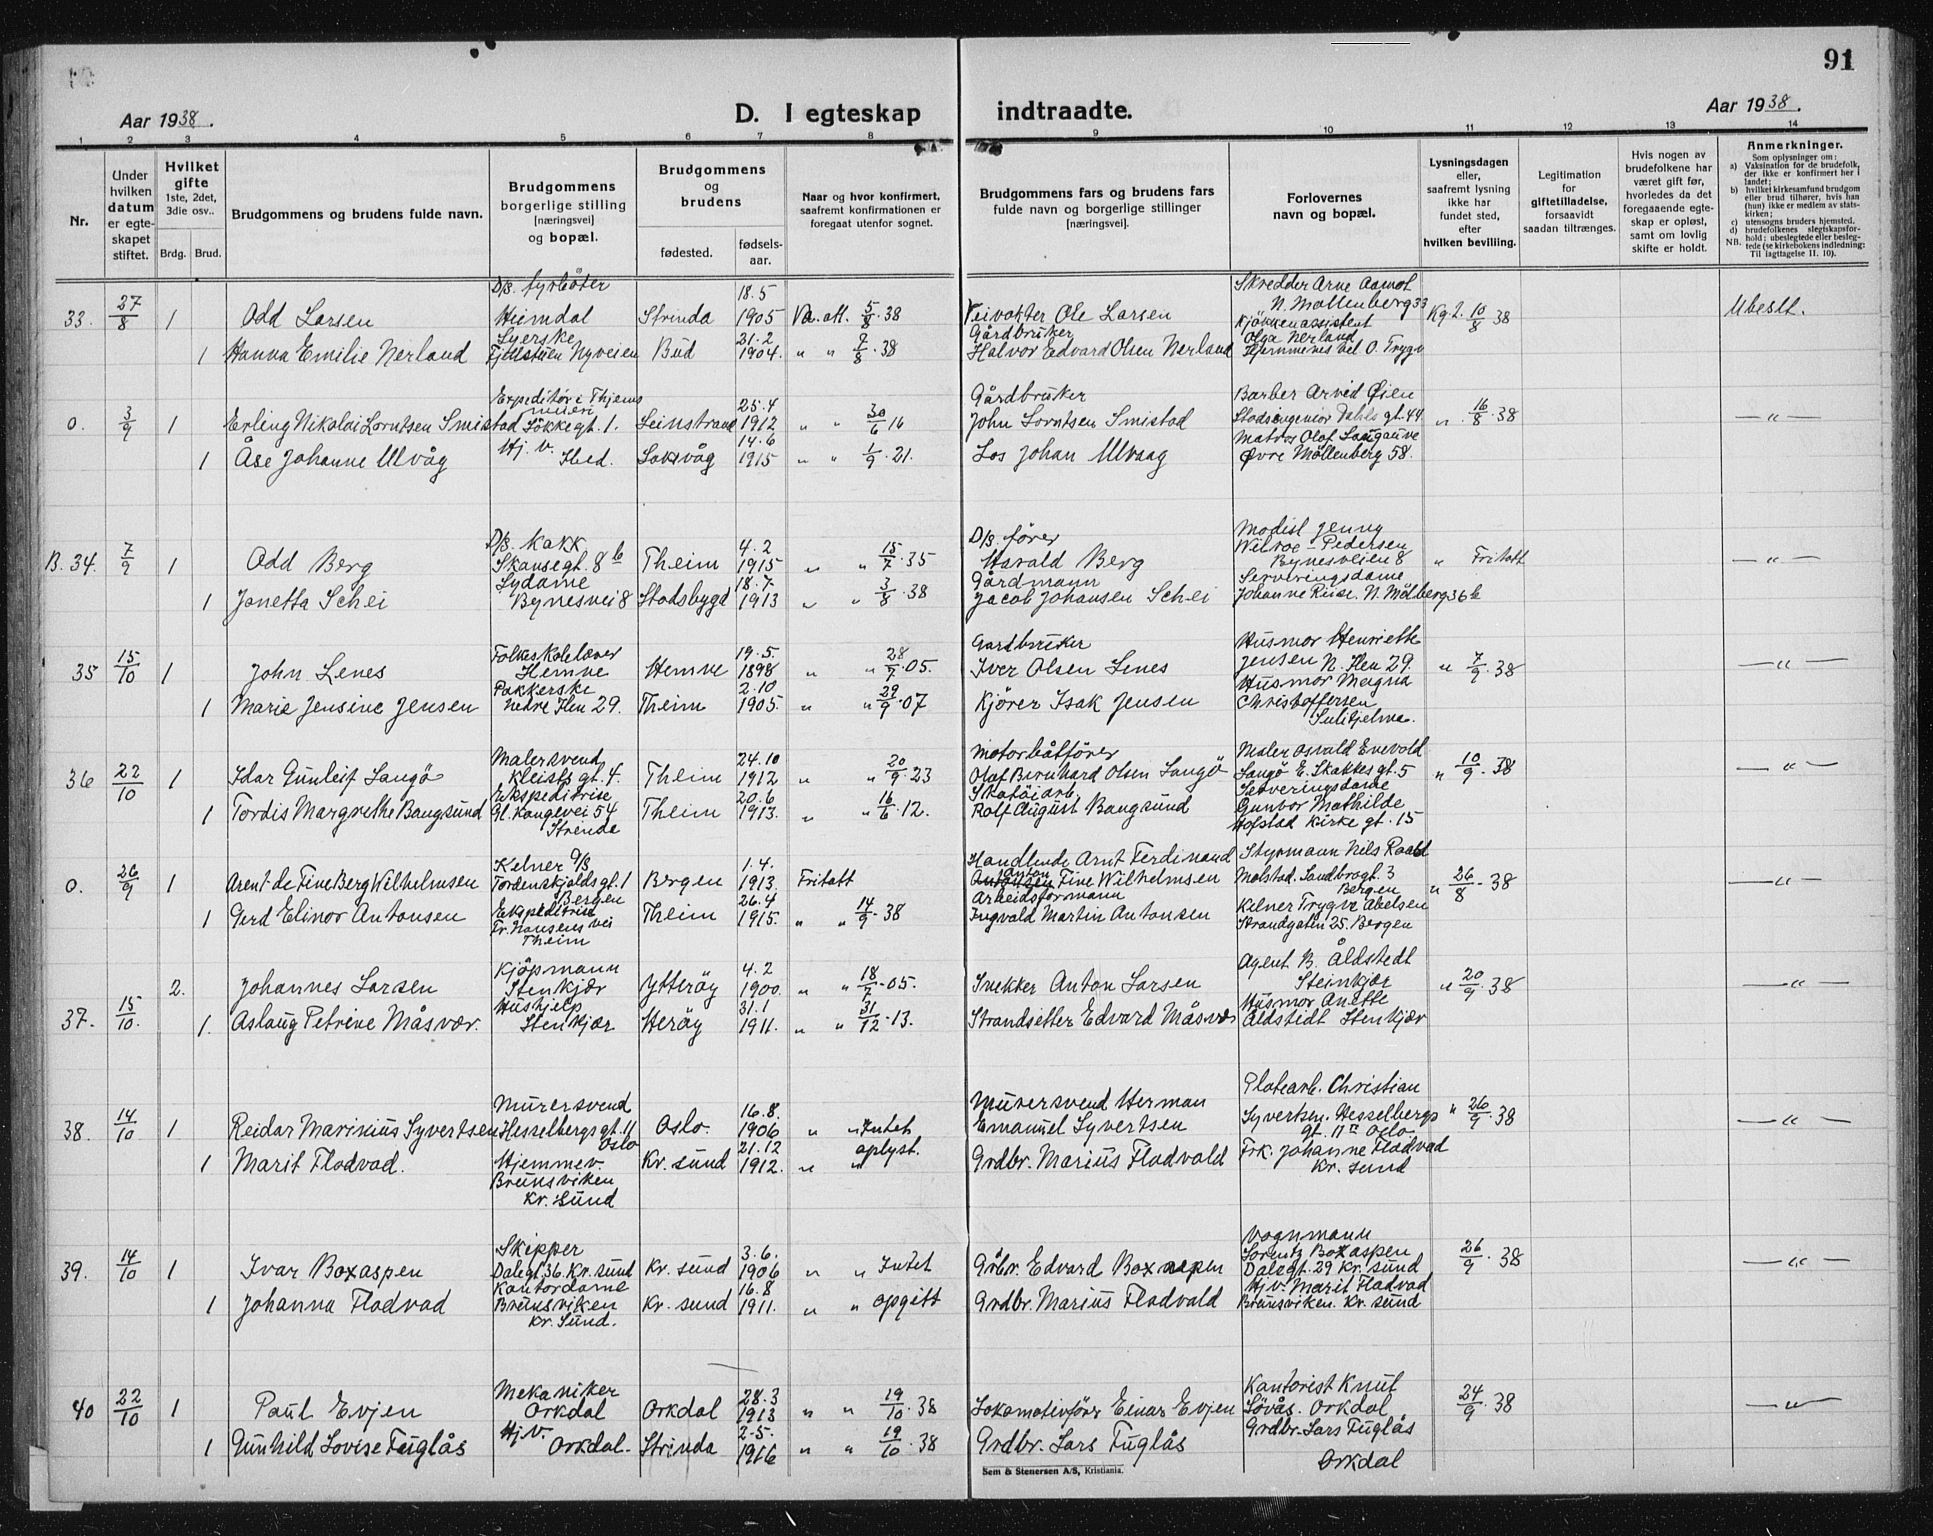 91
Aar 1938.
D. I egteskap indtraadte.
Aar 1938.
1 2 3 4 5 6 7 8 9 10 11 12 13 14
Nr.
Under hvilken datum er egteskapet stiftet.
Hvilket gifte 1ste, 2det, 3die osv..
Brdg. Brud.
Brudgommens og brudens fulde navn.
Brudgommens borgerlige stilling [næringsvei] og bopæl.
Brudgommens og brudens
fødested.
fødsels-aar.
Naar og hvor konfirmert, saafremt konfirmationen er foregaat utenfor sognet.
Brudgommens fars og brudens fars fulde navn og borgerlige stillinger [næringsvei].
Forlovernes navn og bopæl.
Lysningsdagen eller, saafremt lysning ikke har fundet sted, efter hvilken bevilling.
Legitimation for giftetilladelse, forsaavidt saadan tiltrænges.
Hvis nogen av brudefolkene har været gift før, hvorledes da det foregaaende egteskap er opløst, samt om lovlig skifte er holdt.
Anmerkninger.
Som oplysninger om:
a) Vaksination for de brudefolk, der ikke er konfirmert her i landet;
b) hvilket kirkesamfund brudgom eller brud tilhører, hvis han (hun) ikke er medlem av statskirken;
c) utensogns bruders hjemsted.
d) brudefolkenes slegtskapsforhold; ubeslegtede eller beslegtede (se kirkebokens indledning:
NB. Til iagttagelse II. 10).
33. 27/8 1 Odd Larsen D/B. fyrböter Heimdal Strinda 18.5 1905 Va. att. 5/8.38 Veivokter Ole Larsen Skredder Arne Aamot N. Møllenberg 33 Kg.l. 10/8 38 Ubeslt.
1 Hanna Emilie Nerland Syerske Fjellstuen Nyveien Bud 21.2 1904. " " 9/8.38 Gårdbruker Halvor Edvard Olsen Nerland Kjökkenassistent Olga Nerland Hjemmenes vel O. Trygv
0. 3/9 1 Erling Nikolai Lorntsen Smistad Expeditör i Thjems Søkkegt. 1. Leinstrand 25.4 1912 " " 30/6 16 Gårdbruker John Lorntsen Smistad Barber Arvid Øien Stadsingeniør Dahls gt. 44 " 16/8.38 — " —
1 Åse Johanne Ulvåg Hj. v. Ibed. Laksvåg 14.6 1915 " " 1/9.21. Los Johan Ulvaag Matros Olaf Øvre Møllenberg 58.
B. 34. 7/9 1 Odd Berg D/B. kokk Skansegt. 8 b Theim 4.2 1915 " " 15/7.35 D/B. fører Harald Berg Modist Jenny Pedersen Bynesveien 8 " Fritatt — " —
1 Janetta Schei Sydame Bynesvei 8 Stadsbygd 18.7 1913 " " 3/8.38 Gårdmann Jacob Johansen Schei Serveringsdame Johanne Riise. N. Mölberg 36 b
35 15/10 1 John Lenes Folkeskolelærer Hemne Hemne 19.5 1898 " " 28/7.05. Gardbruker Iver Olsen Lenes Husmor Henriette Jensen N. Ilen 29. " 7/9.38 — " —
1 Marie Jensine Jensen Pakkerske Nedre Ilen 29. Theim 2.10 1905. " " 29/9.07 Kjører Isak Jensen Husmor Magna Christoffersen Sulitjelma.
36 22/10 1 Idar Gunleif Langö Malersvend Kleists gt. 4. Theim 24.10 1912 " " 20/9.23 Motorbåtfører Olaf Bernhard Olsen Langö Maler Osvald Enevold Langø E. Skakkes gt. 5 " 10/9.38 — " —
1 Tordis Margrethe Bangsund Ekspeditrise Gl. Kongevei 54 Strinde Theim 20.6 1913. " " 16/6.12. Skotöiarb. Rolf August Bangsund Serveringsdame Gunvor Mathilde Hofstad Kirke gt. 15
0. 26/9 1 Arent de Fine Berg Wilhelmsen Kelner D/B Tordenskjolds gt. 1 Bergen Bergen 1.4. 1913. Fritatt Handlende Arnt Ferdinand Anton Fine Wilhelmsen Styrmann Nils Raabel Molstad. Sandbrogt. 3 Bergen " 26/8.38 — " —
1 Gerd Elinor Antonsen Ekspeditrise Fr. Nansens vei Theim Theim 26.4 1915. " " 14/9.38 Arbeidsformann Ingvald Martin Antonsen Kelner Trygve Abelsen Strandgaten 25. Bergen
37. 15/10. 2. Johannes Larsen Kjöpmann Stenkjær Ytteröy 4.2 1900. " " 18/7.05. Snekker Anton Larsen Agent B. Åldstedt Steinkjær " 20/9.38 — " —
1. Aslaug Petrine Måsvær. Hushjelp Stenkjær Heröy 31.1 1911. " " 31/12.13. Strandsitter Edvard Måsvær Husmor Anette Aldstedt Stenkjær
38. 14/10 1 Reidar Marinius Syvertsen Murersvend Hesselbergs gt. 11 Oslo Oslo. 16.8. 1906 " " Intet Murersvend Herman Emanuel Syvertsen Platearb. Christian Syvertsen. Hesselbergs gt. 11 Oslo " 26/9.38 — " —
1 Marit Flodvad. Hjemmev. Brunsviken Kr. Sund Kr. sund 21.12 1912. " " oplyst. Grdbr. Marius Flodvald Frk. Johanne Flodvad Kr. sund
39. 14/10 1 Ivar Boxaspen Skipper Dalegt. 36. Kr. sund Kr. sund 3.6. 1906 " " Intet Grbr. Edvard Boxaspen Vognmann Lorentz Boxaspen Dalegt. 29 Kr. sund 26/9.38 — " —
1 Johanna Flodvad Kontordame Brunsviken Kr. Sund. Kr. sund 16.8 1911. " " opgitt Grdbr. Marius Flodvald Hj.v. Marit Flodvad Brunsviken. Kr. sund
40 22/10 1 Paul Evjen Mekaniker Orkdal Orkdal 28.3 1913 " " 19/10.38 Lokomotivförer Einar Evjen Kontorist Knut Løvås. Orkdal 24/9.38 — " —
1 Gunhild Lovise Fuglås Hj.v. Orkdal. Strinda 2.5. 1916 " " 19/10.38 Grdbr. Lars Fuglås Grdbr. Lars Fuglås Orkdal
Sem & Stenersen A/S, Kristiania.